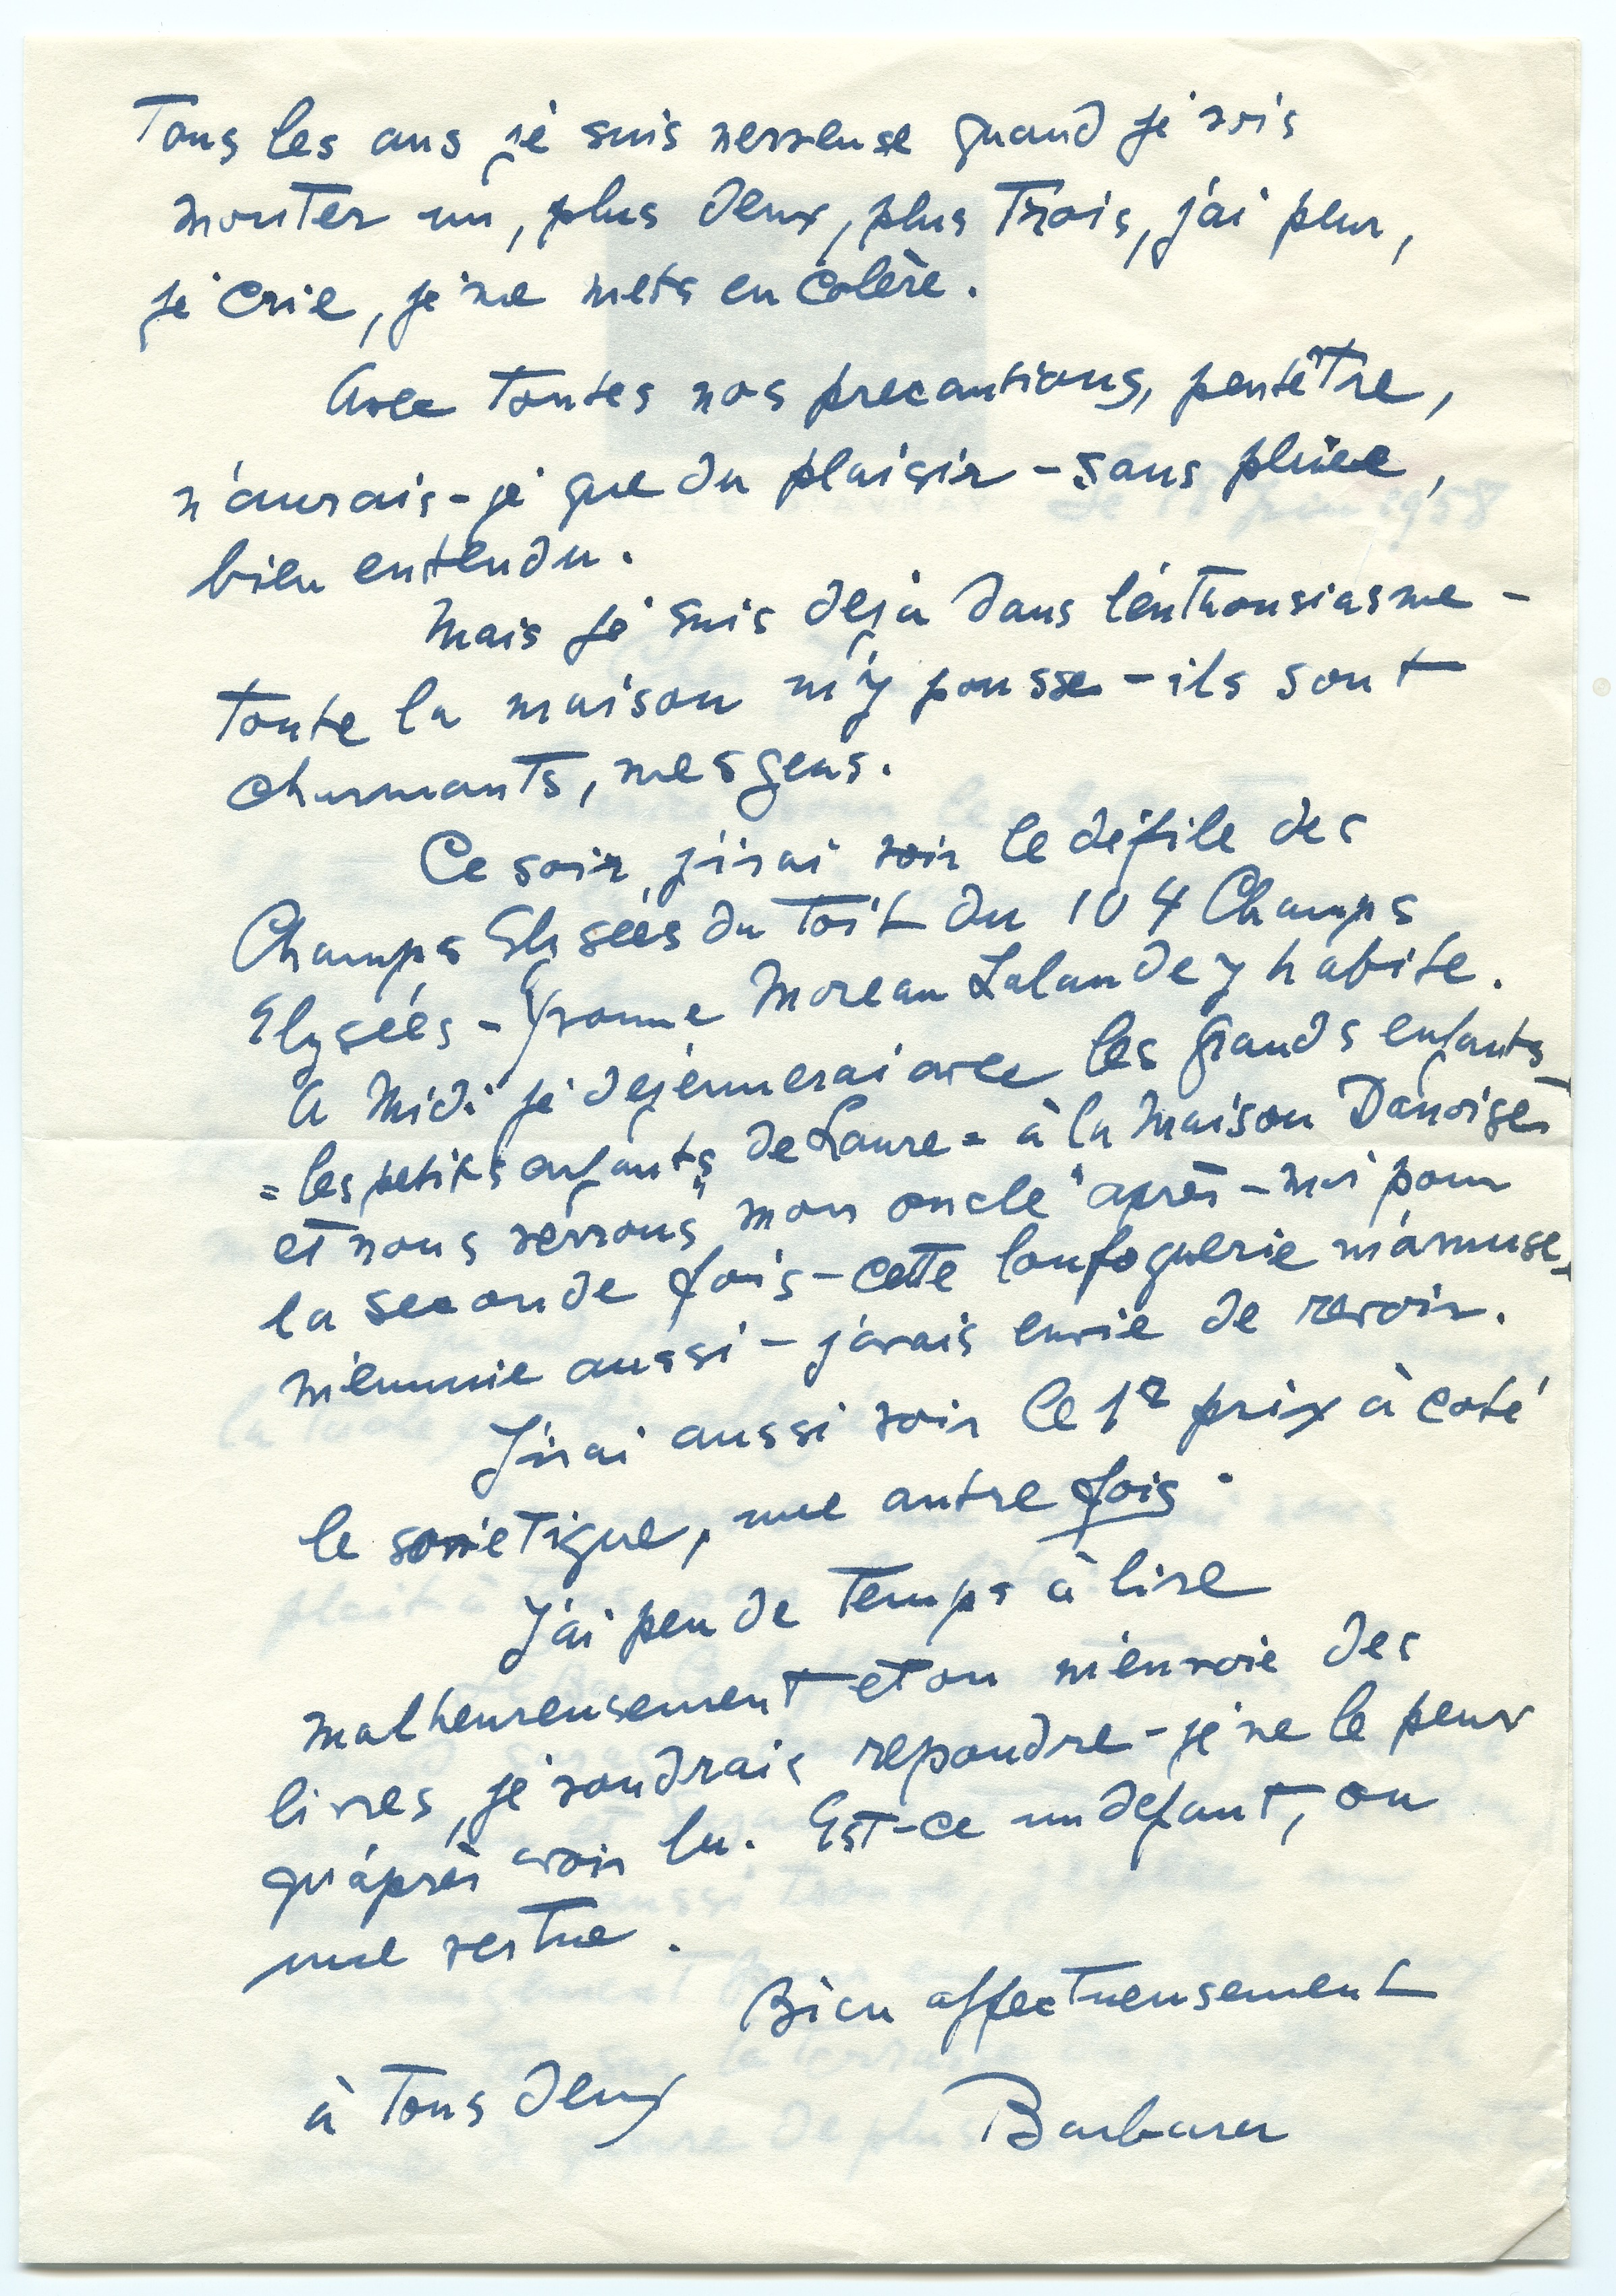 Tous les ans je suis nerveuse quand je vois
monter un, plus deux, plus trois, j'ai peur,
je crie, je me mets en colère.
Avec toutes nos precautions, peutêtre,
n'aurais-je que du plaisir - sans pluie,
bien entendu.
Mais je suis dejà dans l'enthousiasme -
toute la maison m'y pousse - ils sont
charmants, mes gens.
Ce soir, j'irai voir le défile des
Champs Elysées du toit du 104 Champs
Elysées - Yvonne Moreau Lalande y habite.
A midi je dejeunerai avec les grands enfants
= les petits enfants de Laure = à la Maison Danoise
et nous verrons "mon oncle" après-midi pour
la seconde fois - cette loufoquerie m'amuse,
m'ennuie aussi - j'avais envie de revoir.
J'irai aussi voir le 1er prix à coté
le sovietique, une autre fois.
J'ai peu de temps à lire
malheureusement et on m'envoie des
livres, je voudrais repondre - je ne le peux
qu'après avoir lu. Est-ce un defaut, ou
une vertue.
Bien affectueusement
à tous deux Barbara